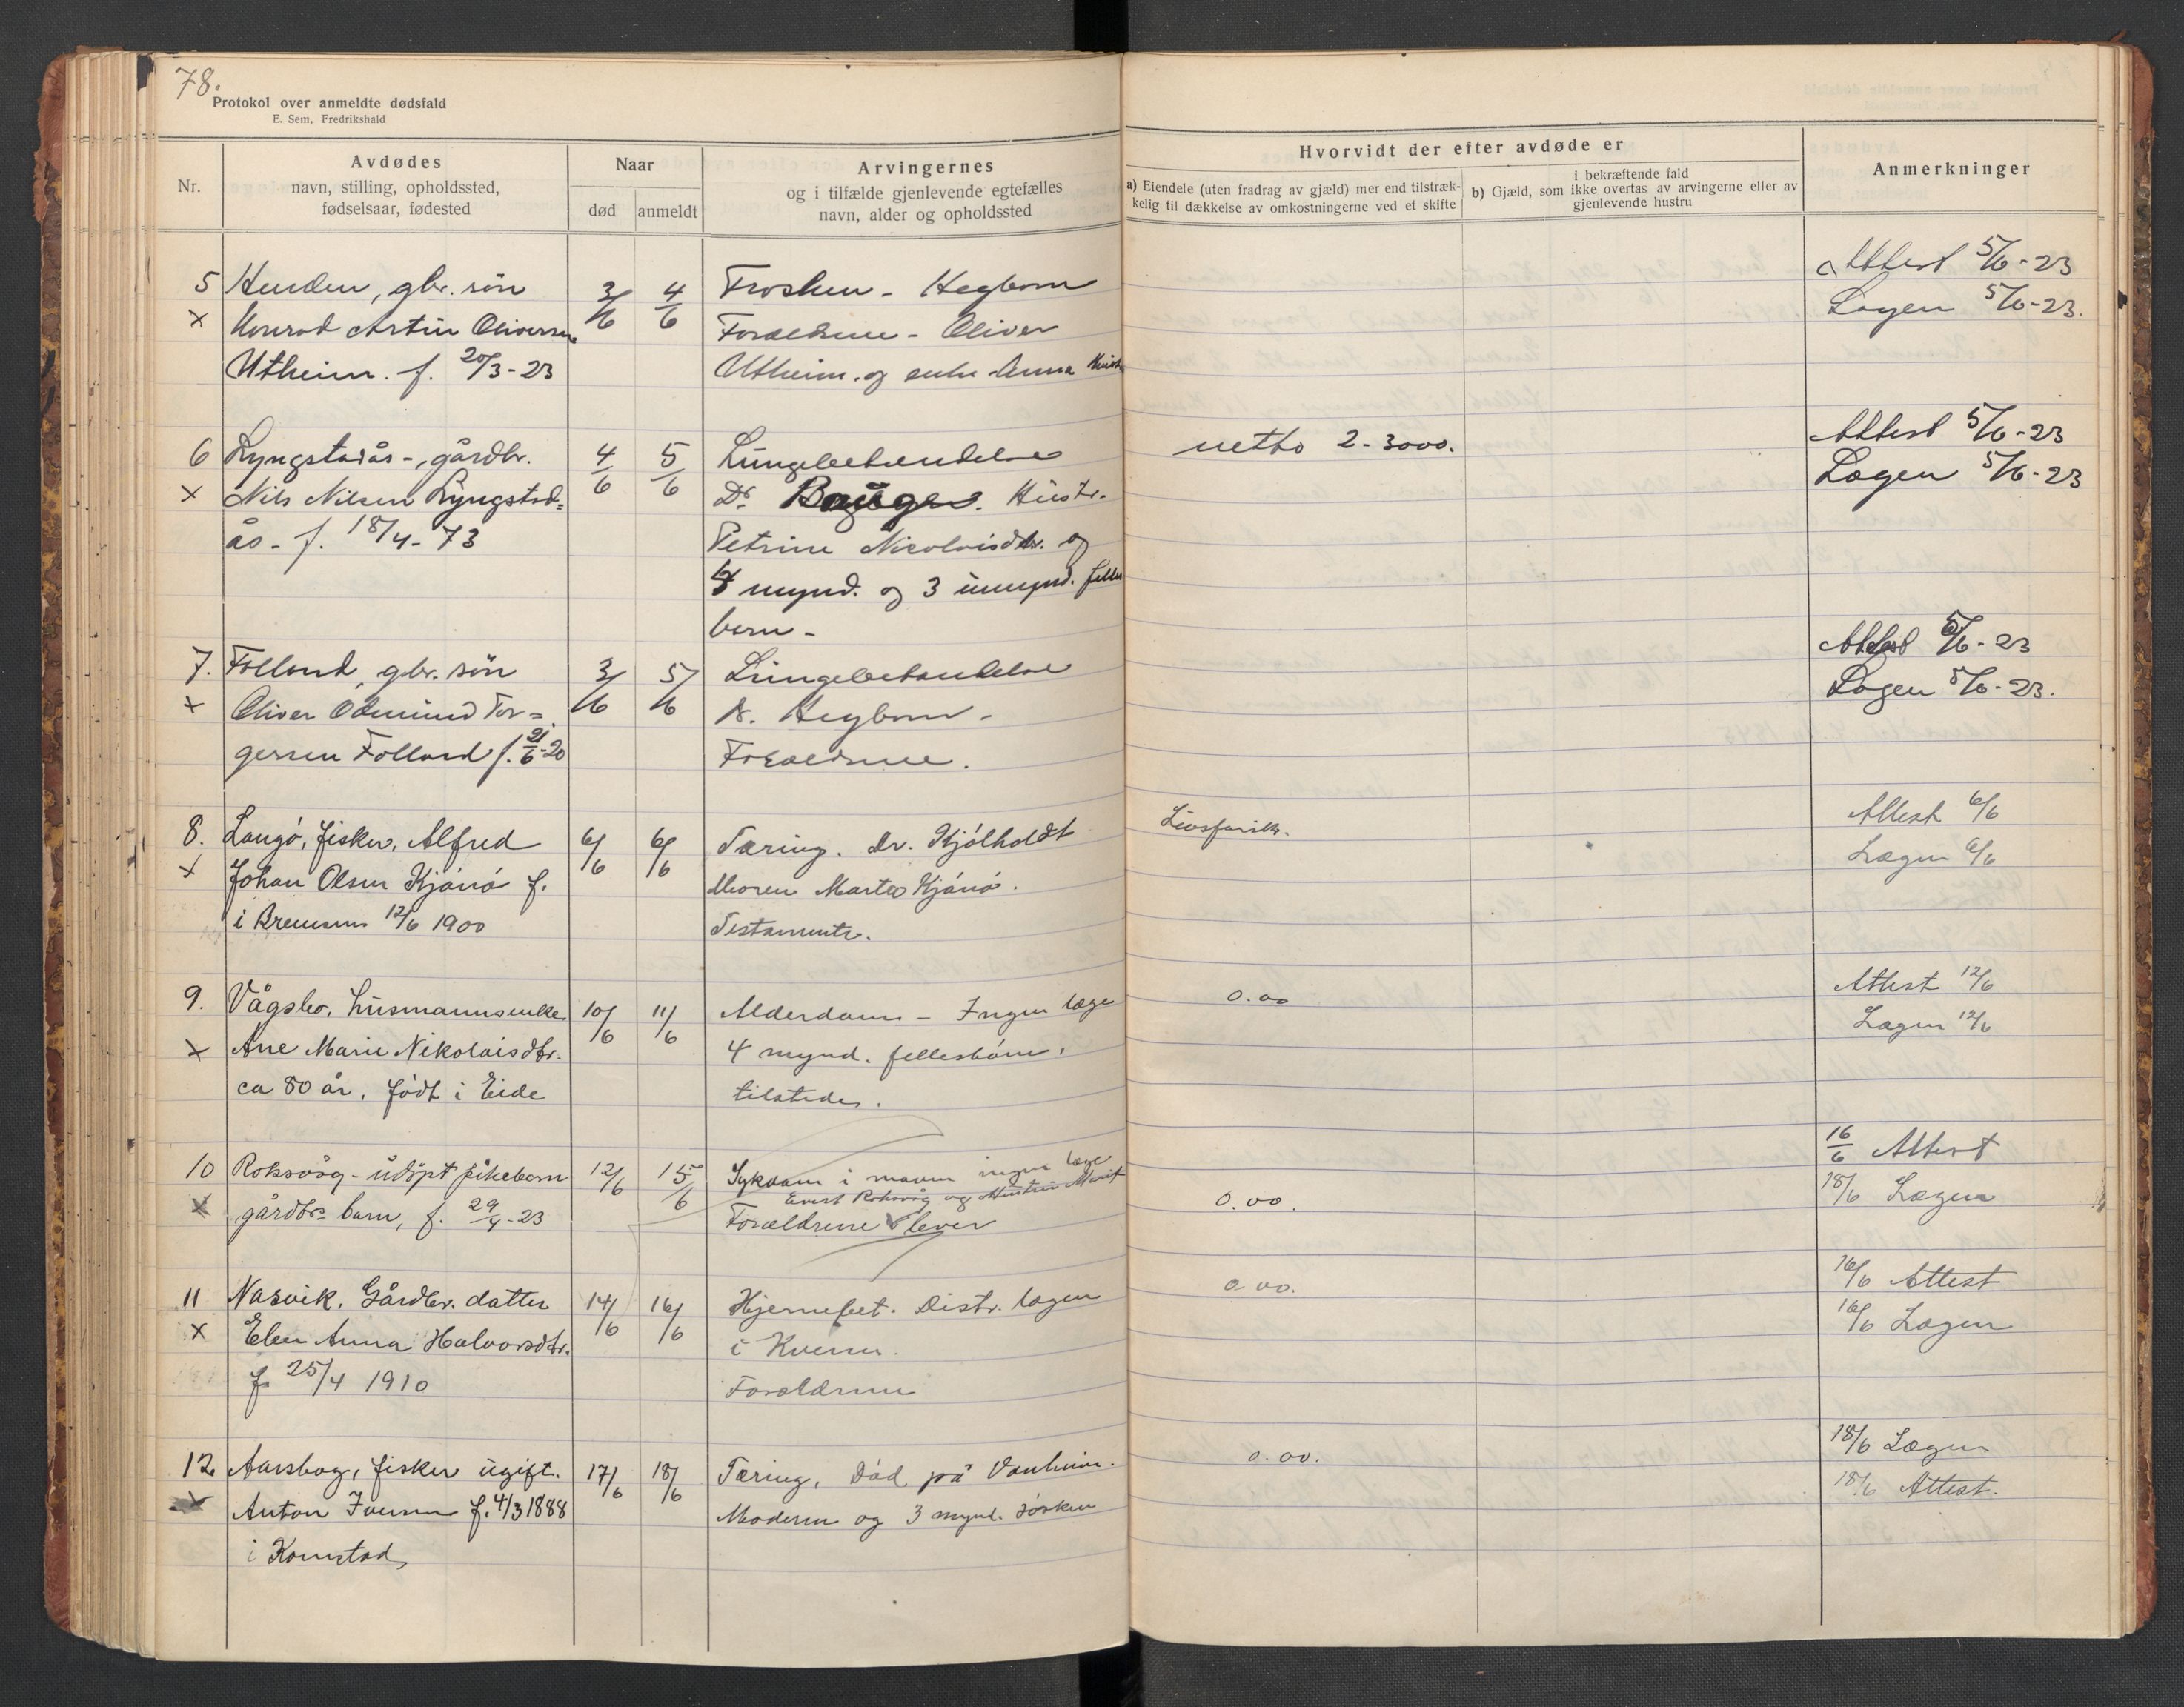 78.
Protokol over anmeldte dødsfald
E. Sem, Fredrikshald
Nr.
Avdødes
navn, stilling, opholdssted,
fødselsaar, fødested
Naar
død
anmeldt
Arvingernes
og i tilfælde gjenlevende egtefælles
navn, alder og opholdssted
Hvorvidt der efter avdøde er
a) Eiendele (uten fradrag av gjæld) mer end tilstræk-
kelig til dækkelse av omkostningerne ved et skifte
i bekræftende fald
b) Gjæld, som ikke overtas av arvingerne eller av
gjenlevende hustru
Anmerkninger
5 Henden, gbr. søn 3/6 4/6 Hegbom Attest 5/6-23
x Konrad Artin Oliversen Forældrene - Oliver Lægen 5/6-23.
Utheim. f. 20/3-23 Utheim. og Anna
6 Lyngstadås -, gårdbr. 4/6 5/6 Lungebetændelse netto 2-3000. Attest 5/6-23
x Nils Nilsen Lyngstad= Dr. Bauge. Hustr. Lægen 5/6-23
ås - f. 18/4-73 Petrine Nicolaisdtr. og
mynd. og 3 umynd. felles
børn -
7. Folland, gbr. søn 3/6 5/6 Lungebetændelse Attest 5/6-23
x Oliver Odmund Tor= Hegbom - Lægen 5/6-23.
gersen Folland f. 21/6-20 Forældrene.
8. Langö, fisker, Alfred 6/6 6/6 Tæring. Dr. Kjölholdt Livsforsikr. Attest 6/6
x Johan Olsen Kjönö f. Moren Marta Kjönö. Lægen 6/6
i Bremsnes 12/6 1900 Testamente.
9. Vågsbø, husmannsenke 10/6 11/6 Alderdom - Ingen læge 0.00 Attest 12/6
x Ane Marie Nikolaisdtr. 4 mynd. fellesbörn. Lægen 12/6
ca 80 år, født i Eide tilstede.
10 Roksvåg - udöpt pikebarn 12/6 15/6 Sykdom i maven ingen læge 16/6 Attest
Roksvåg og Hustru Marit
x gårdbr. barn, f. 29/4-23 Forældrene lever 0.00. 18/6 Lægen
11 Nasvik, Gårdbr. datter 14/6 16/6 Hjernebet. Distr. lægen 0.00. 16/6 Attest
x Elen Anna Halvorsdtr. i Kvernes. 16/6 Lægen
f. 25/4 1910 Forældrene
12 Aarsbog, fisker ugift. 17/6 18/6 Tæring, Död på 0.00. 18/6 Lægen
x Anton Iversen f. 4/3 1888 Moderen og 3 mynd. sösken 18/6 Attest.
i Kornstad,